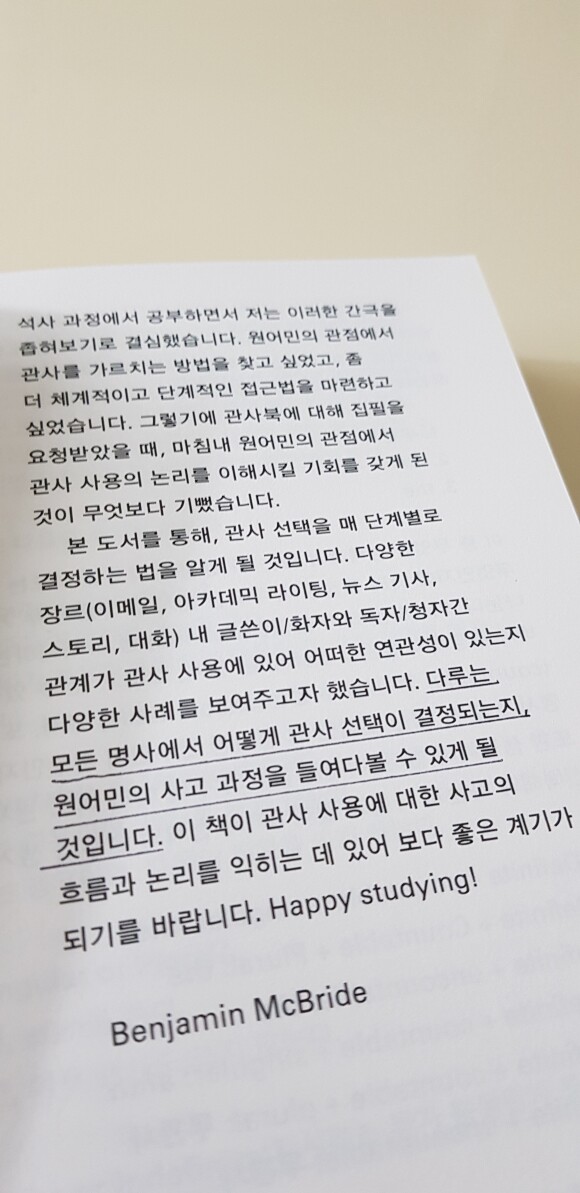 석사 과정에서 공부하면서 저는 이러한 간극을
좁혀보기로 결심했습니다. 원어민의 관점에서
관사를 가르치는 방법을 찾고 싶었고, 좀
더 체계적이고 단계적인 접근법을 마련하고
싶었습니다. 그렇기에 관사북에 대해 집필을
요청받았을 때, 마침내 원어민의 관점에서
관사 사용의 논리를 이해시킬 기회를 갖게 된
것이 무엇보다 기뻤습니다.
본 도서를 통해, 관사 선택을 매 단계별로
결정하는 법을 알게 될 것입니다. 다양한
장르(이메일, 아카데믹 라이팅, 뉴스 기사,
스토리, 대화) 내 글쓴이/화자와 독자/청자간
관계가 관사 사용에 있어 어떠한 연관성이 있는지
다양한 사례를 보여주고자 했습니다. 다루는
모든 명사에서 어떻게 관사 선택이 결정되는지,
원어민의 사고 과정을 들여다볼 수 있게 될
것입니다. 이 책이 관사 사용에 대한 사고의
흐름과 논리를 익히는 데 있어 보다 좋은 계기가
되기를 바랍니다. Happy studying!
Benjamin McBride